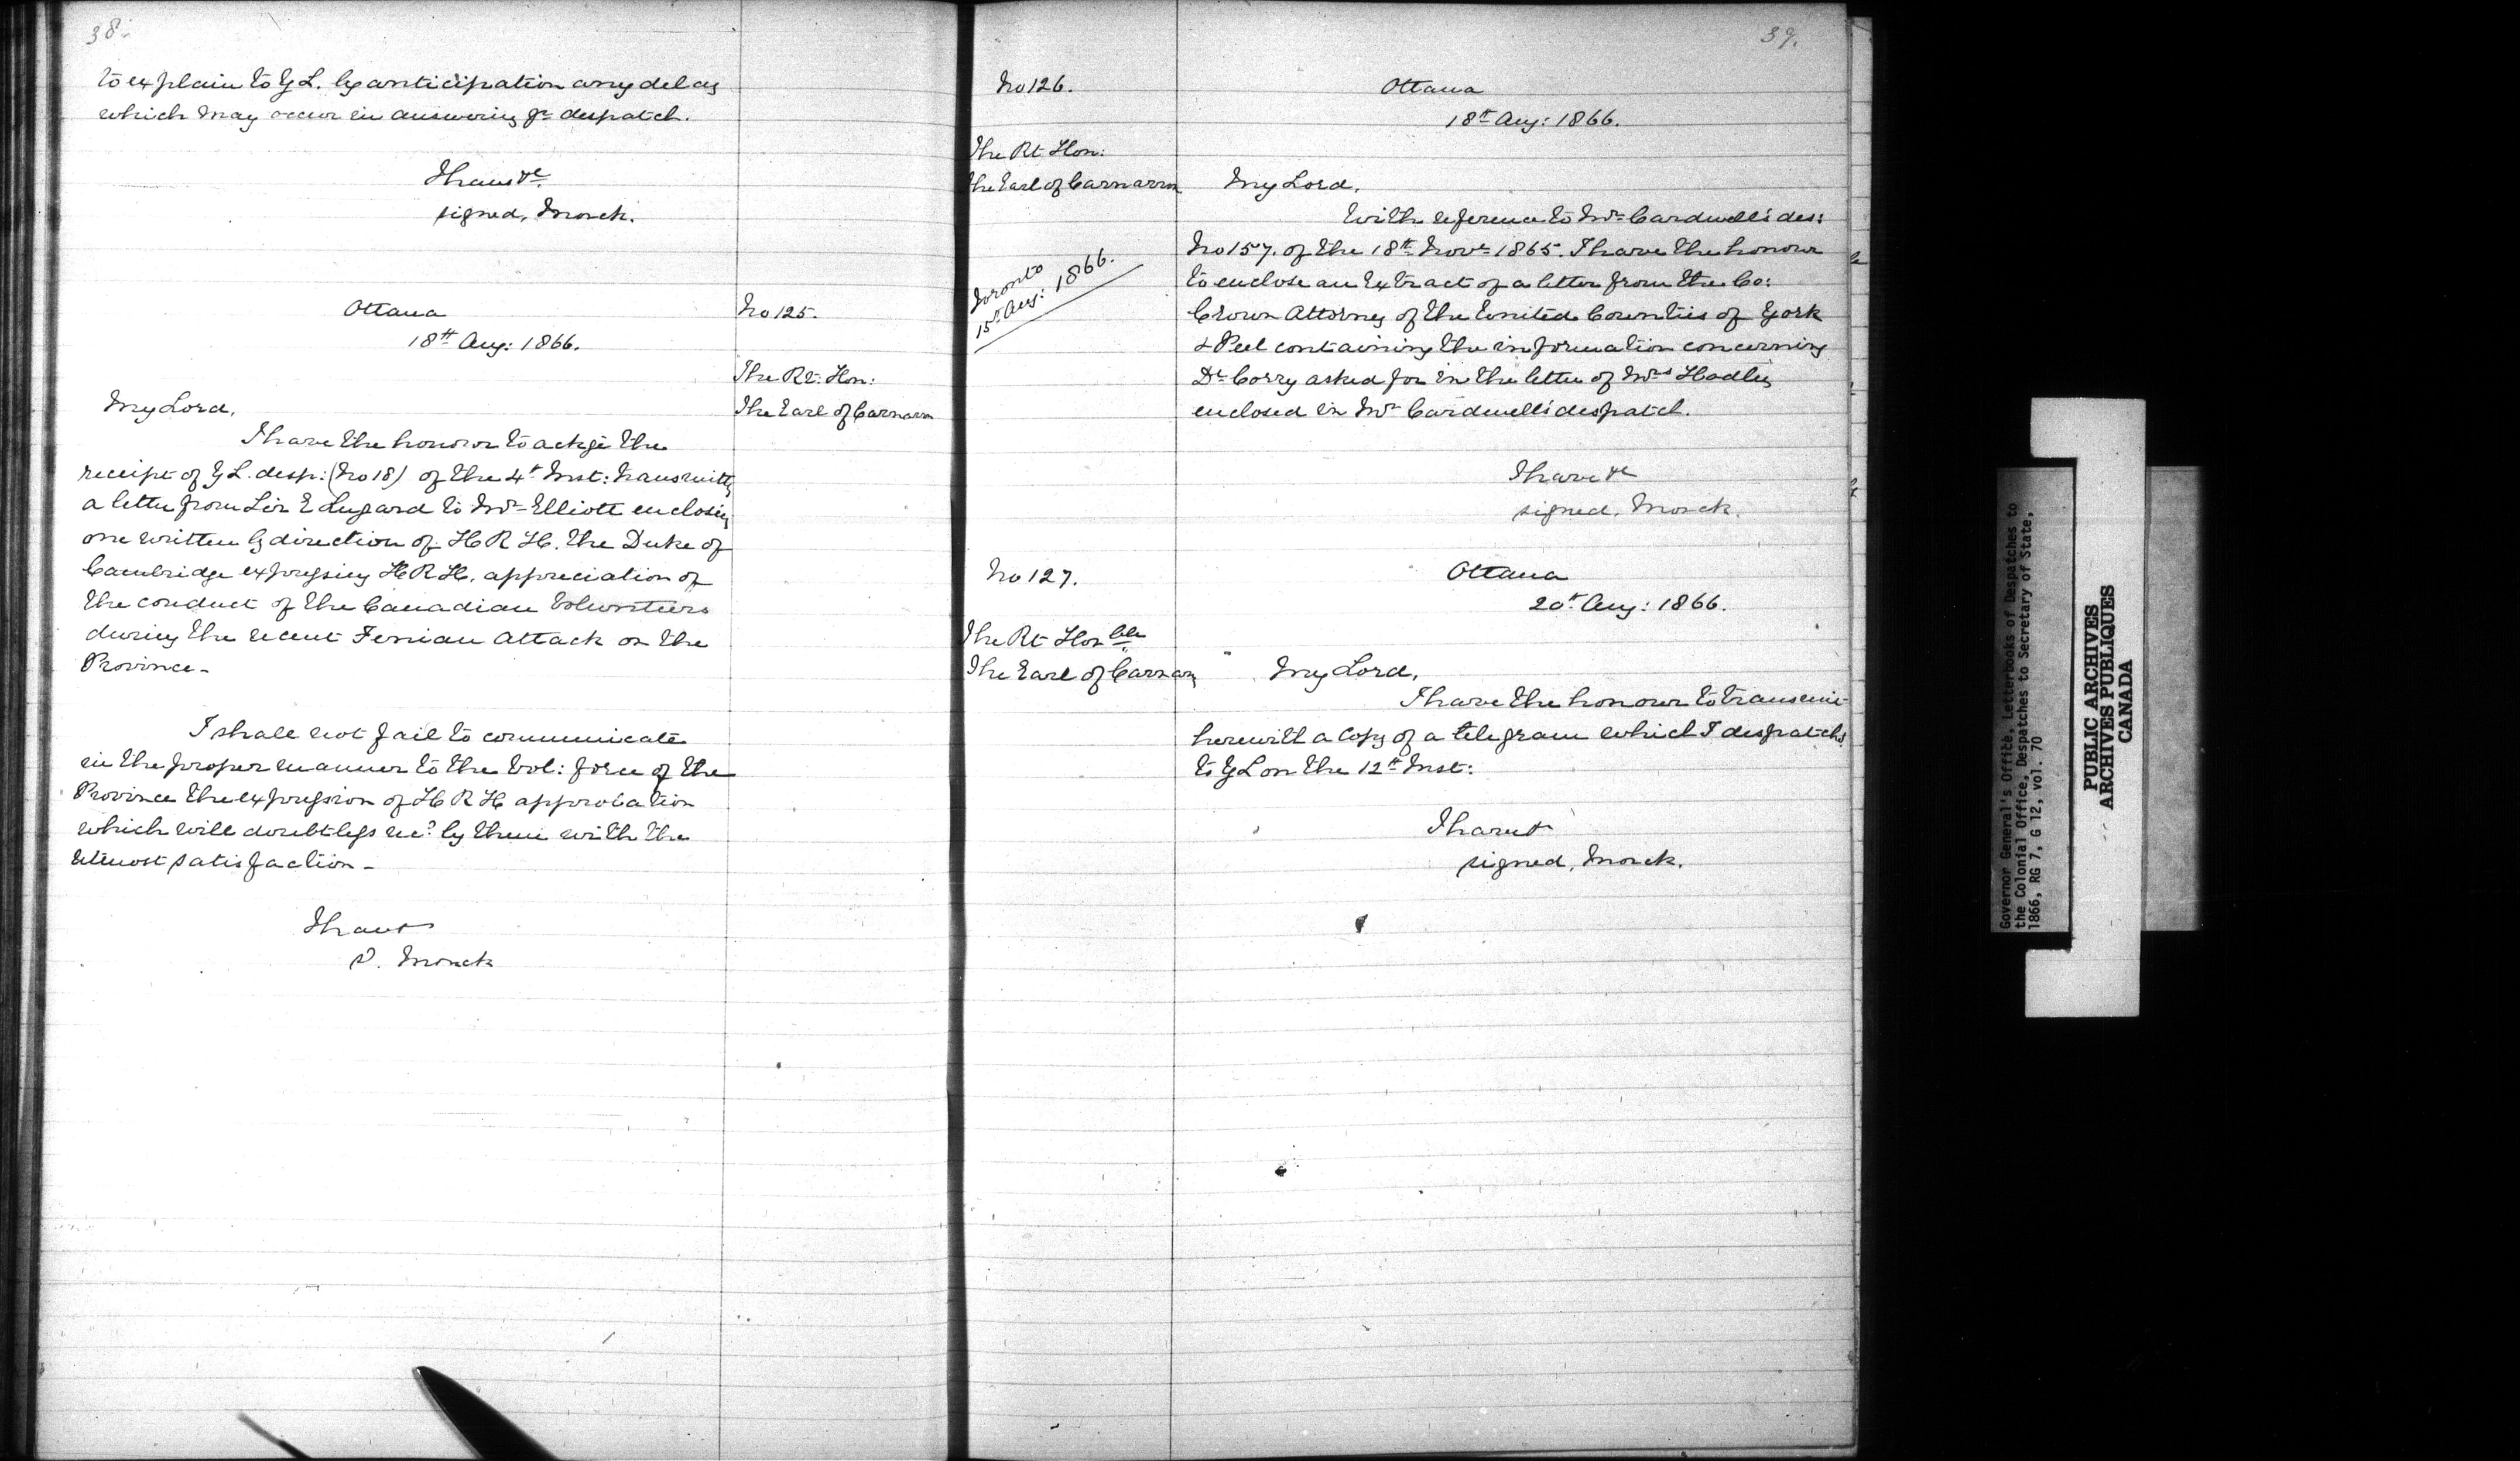 38.
to explain to Y L. by anticipation any delay
which may occur in answering yr despatch.
I have &c
signed, Monck.
Ottawa
18th Aug: 1866.
No 125.
The Rt: Hon:
The Earl of Carnarvon
My Lord,
I have the honour to ackge the
receipt of Y L. desp: (No 18) of the 4th Inst: transmittg
a letter from Sir E Lugard to Mr Elliott enclosing
one written by direction of H R H. the Duke of
Cambridge expressing H R H. appreciation of
the conduct of the Canadian Volunteers
during the recent Fenian Attack on the
Province -
I shall not fail to communicate
in the proper manner to the Vol: force of the
Province the expression of H R H approbation
which will doubtless recd by them with the
utmost satisfaction -
I have &
S. Monck
39.
No 126.
Ottawa
18th Aug: 1866.
The Rt Hon:
The Earl of Carnarvon
My Lord,
With reference to Mr Cardwell's des:
No 157. of the 18th Novr 1865. I have the honour
Toronto
15th Aug: 1866.
to enclose an Extract of a letter from the Co:
Crown Attorney of the United Counties of York
& Peel containing the information concerning
Dr Corry asked for in the letter of Mrs Hadley
enclosed in Mr Cardwell's despatch.
I have &c
signed, Monck.
No 127.
Ottawa
20th Aug: 1866.
The Rt Honble
The Earl of Carnarvon
My Lord,
I have the honour to transmit
herewith a Copy of a telegram which I despatchd
to Y L on the 12th Inst:
I have &
signed, Monck.
Governor General's Office, Letterbooks of Despatches to
the Colonial Office, Despatches to Secretary of State,
1866, RG 7, G 12, vol. 70
PUBLIC ARCHIVES
ARCHIVES PUBLIQUES
CANADA